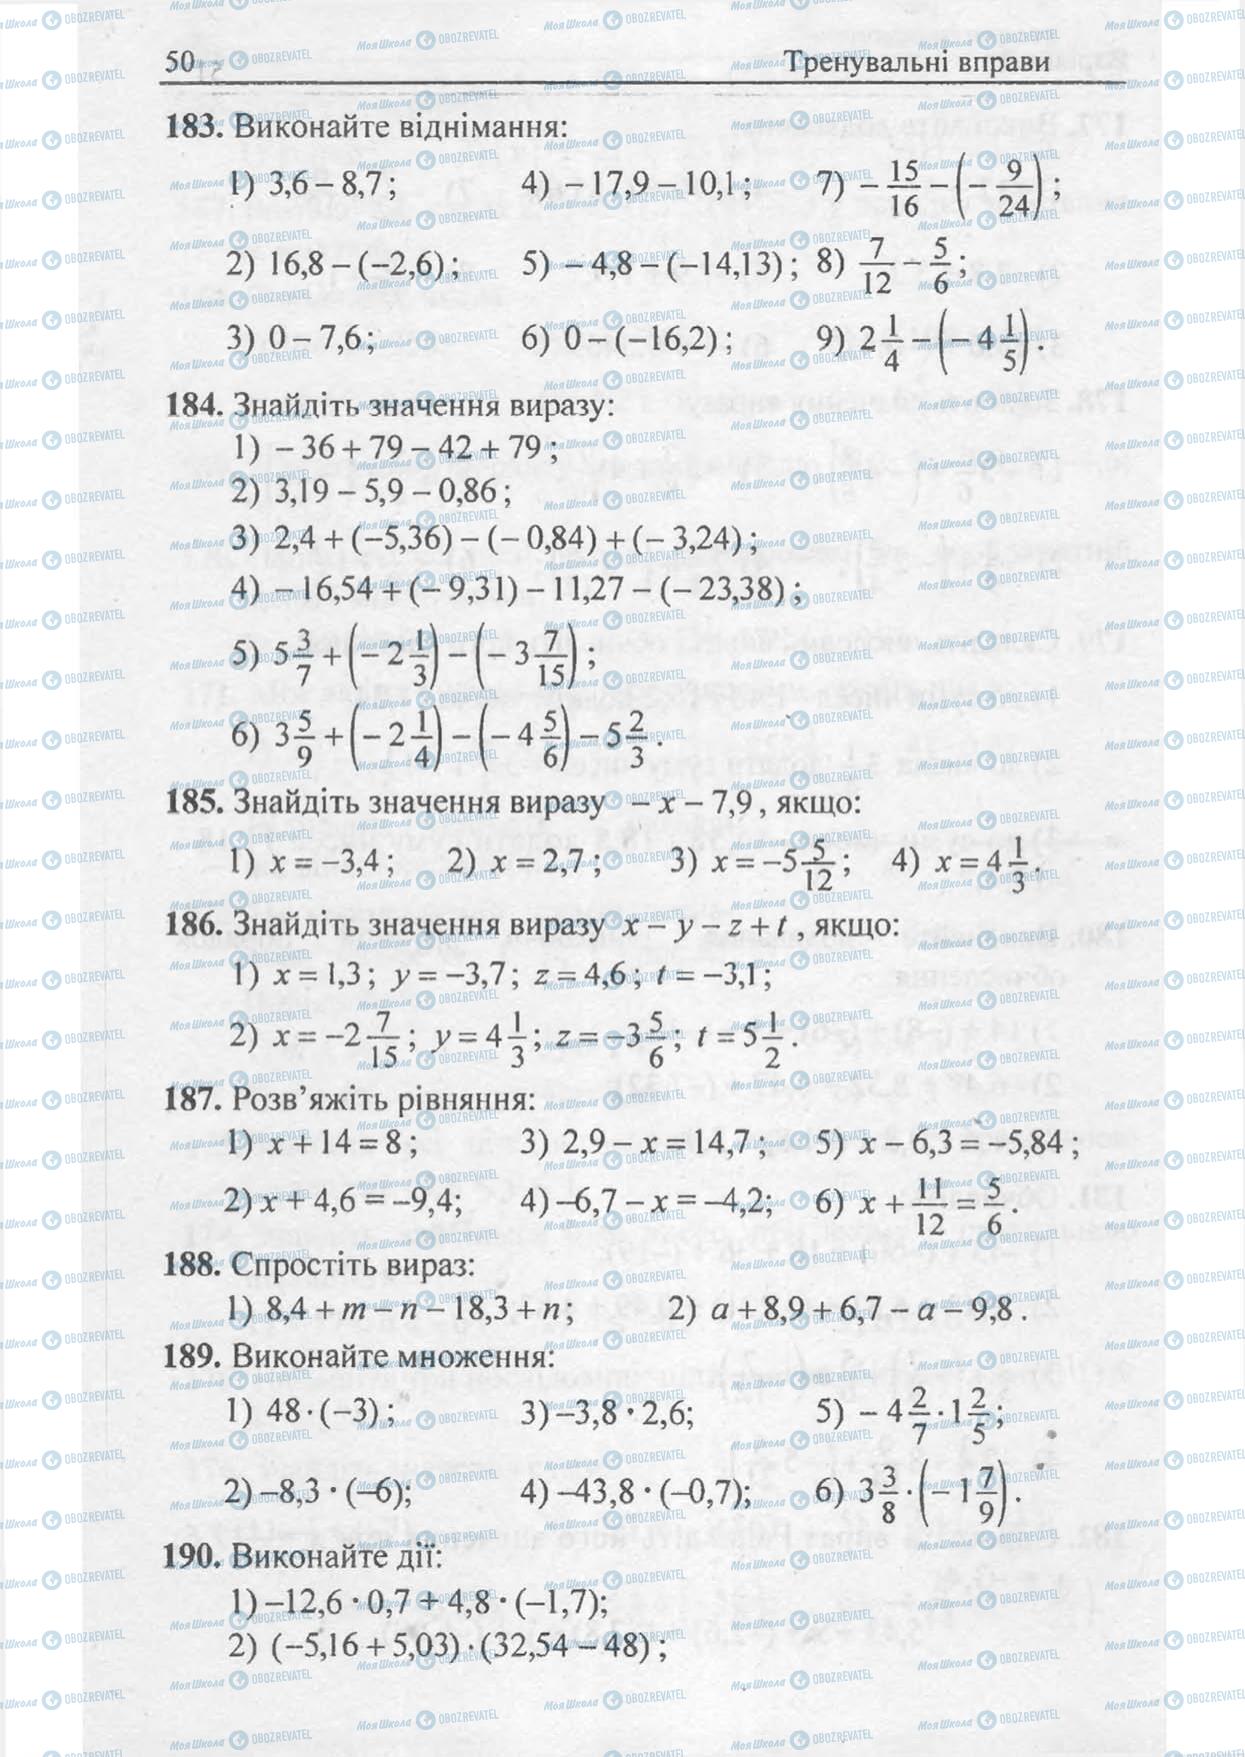 50 Тренувальні вправи
183. Виконайте віднімання:
1) 3,6 – 8,7; 4) – 17,9 – 10,1; 7) – 15/16 – (– 9/24);
2) 16,8 – (–2,6); 5) – 4,8 – (–14,13); 8) 7/12 – 5/6;
3) 0 – 7,6; 6) 0 – (–16,2); 9) 2 1/4 – (– 4 1/5).
184. Знайдіть значення виразу:
1) – 36 + 79 – 42 + 79;
2) 3,19 – 5,9 – 0,86;
3) 2,4 + (–5,36) – (– 0,84) + (– 3,24);
4) – 16,54 + (– 9,31) – 11,27 – (– 23,38);
5) 5 3/7 + (– 2 1/3) – (– 3 7/15);
6) 3 5/9 + (– 2 1/4) – (– 4 5/6) – 5 2/3.
185. Знайдіть значення виразу – x – 7,9, якщо:
1) x = –3,4; 2) x = 2,7; 3) x = –5 5/12; 4) x = 4 1/3.
186. Знайдіть значення виразу x – y – z + t, якщо:
1) x = 1,3; y = –3,7; z = 4,6; t = –3,1;
2) x = –2 7/15; y = 4 1/3; z = –3 5/6; t = 5 1/2.
187. Розв’яжіть рівняння:
1) x + 14 = 8; 3) 2,9 – x = 14,7; 5) x – 6,3 = –5,84;
2) x + 4,6 = –9,4; 4) –6,7 – x = –4,2; 6) x + 11/12 = 5/6.
188. Спростіть вираз:
1) 8,4 + m – n – 18,3 + n; 2) a + 8,9 + 6,7 – a – 9,8.
189. Виконайте множення:
1) 48 · (–3); 3) –3,8 · 2,6; 5) – 4 2/7 · 1 2/5;
2) –8,3 · (–6); 4) –43,8 · (–0,7); 6) 3 3/8 · (– 1 7/9).
190. Виконайте дії:
1) –12,6 · 0,7 + 4,8 · (–1,7);
2) (–5,16 + 5,03) · (32,54 – 48);
Моя Школа OBOZREVATEL